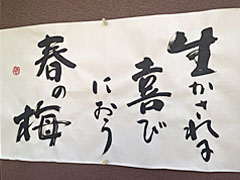 生かされる
喜び
におう
春の梅